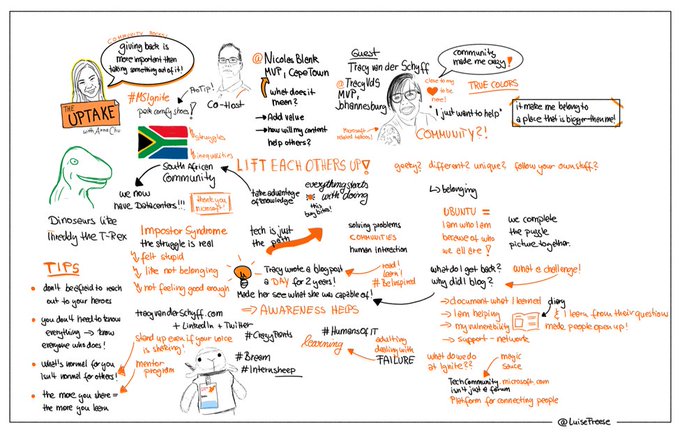 COMMUNITY ROCKS!
giving back is
more important than
taking something out of it!
THE
UPTAKE
with Anna Chu
#MSIgnite
ProTip!
pack comfy shoes!
Co-Host
@NicolasBlank
MVP, CapeTown
what does it
mean?
→ Add value
→ how will my content
help others?
Guest
Tracy van der Schyff
@TracyVdS
MVP,
Johannesburg
community
made me crazy!
close to my
to be
here!
"I just want to help"
Microsoft
related tattoos!
COMMUNITY?!
TRUE COLORS
it make me belong to
a place that is bigger than me!
struggles
inequalities
South African
Community
LIFT EACH OTHERS UP!
geeky? different? unique? follow your own stuff?
we now
have Datacenters!!!
thank you
microsoft!
take advantage
of knowledge
everything starts
with doing
this
bug bites!
↳ belonging
UBUNTU =
I am who I am
because of who
we all are!
we complete
the puzzle
picture together.
Dinosaurs like
Thready the T-Rex
Impostor Syndrome
the struggle is real
felt stupid
like not belonging
not feeling good enough
tech is just
the path
solving problems
COMMUNITIES
human interaction
TIPS
• don't be afraid to reach
out to your heroes
• you don't need to know
everything → know
everyone who does!
• What's normal for you
isn't normal for others!
• the more you share =
the more you learn
Tracy wrote a blog post
a DAY for 2 years!
Made her see what she was capable of!
⇒ AWARENESS HELPS
read I
learn!
#BeInspired
what do we get back?
why did I blog?
what a challenge!
→ document what I learned
→ I am helping
→ my vulnerability
→ support - network
diary
I learn from their questions
made people open up!
tracyvanderSchyff.com
+ LinkedIn + Twitter
stand up even if your voice
is shaking!
mentor
program
#CrazyPants
#Bream
#Internsheep
#HumansofIT
learning
adulting
dealing with
FAILURE
what do we do
at Ignite??
magic
sauce
TechCommunity.microsoft.com
isn't just a forum
Platform for connecting people
@LuiseFreese